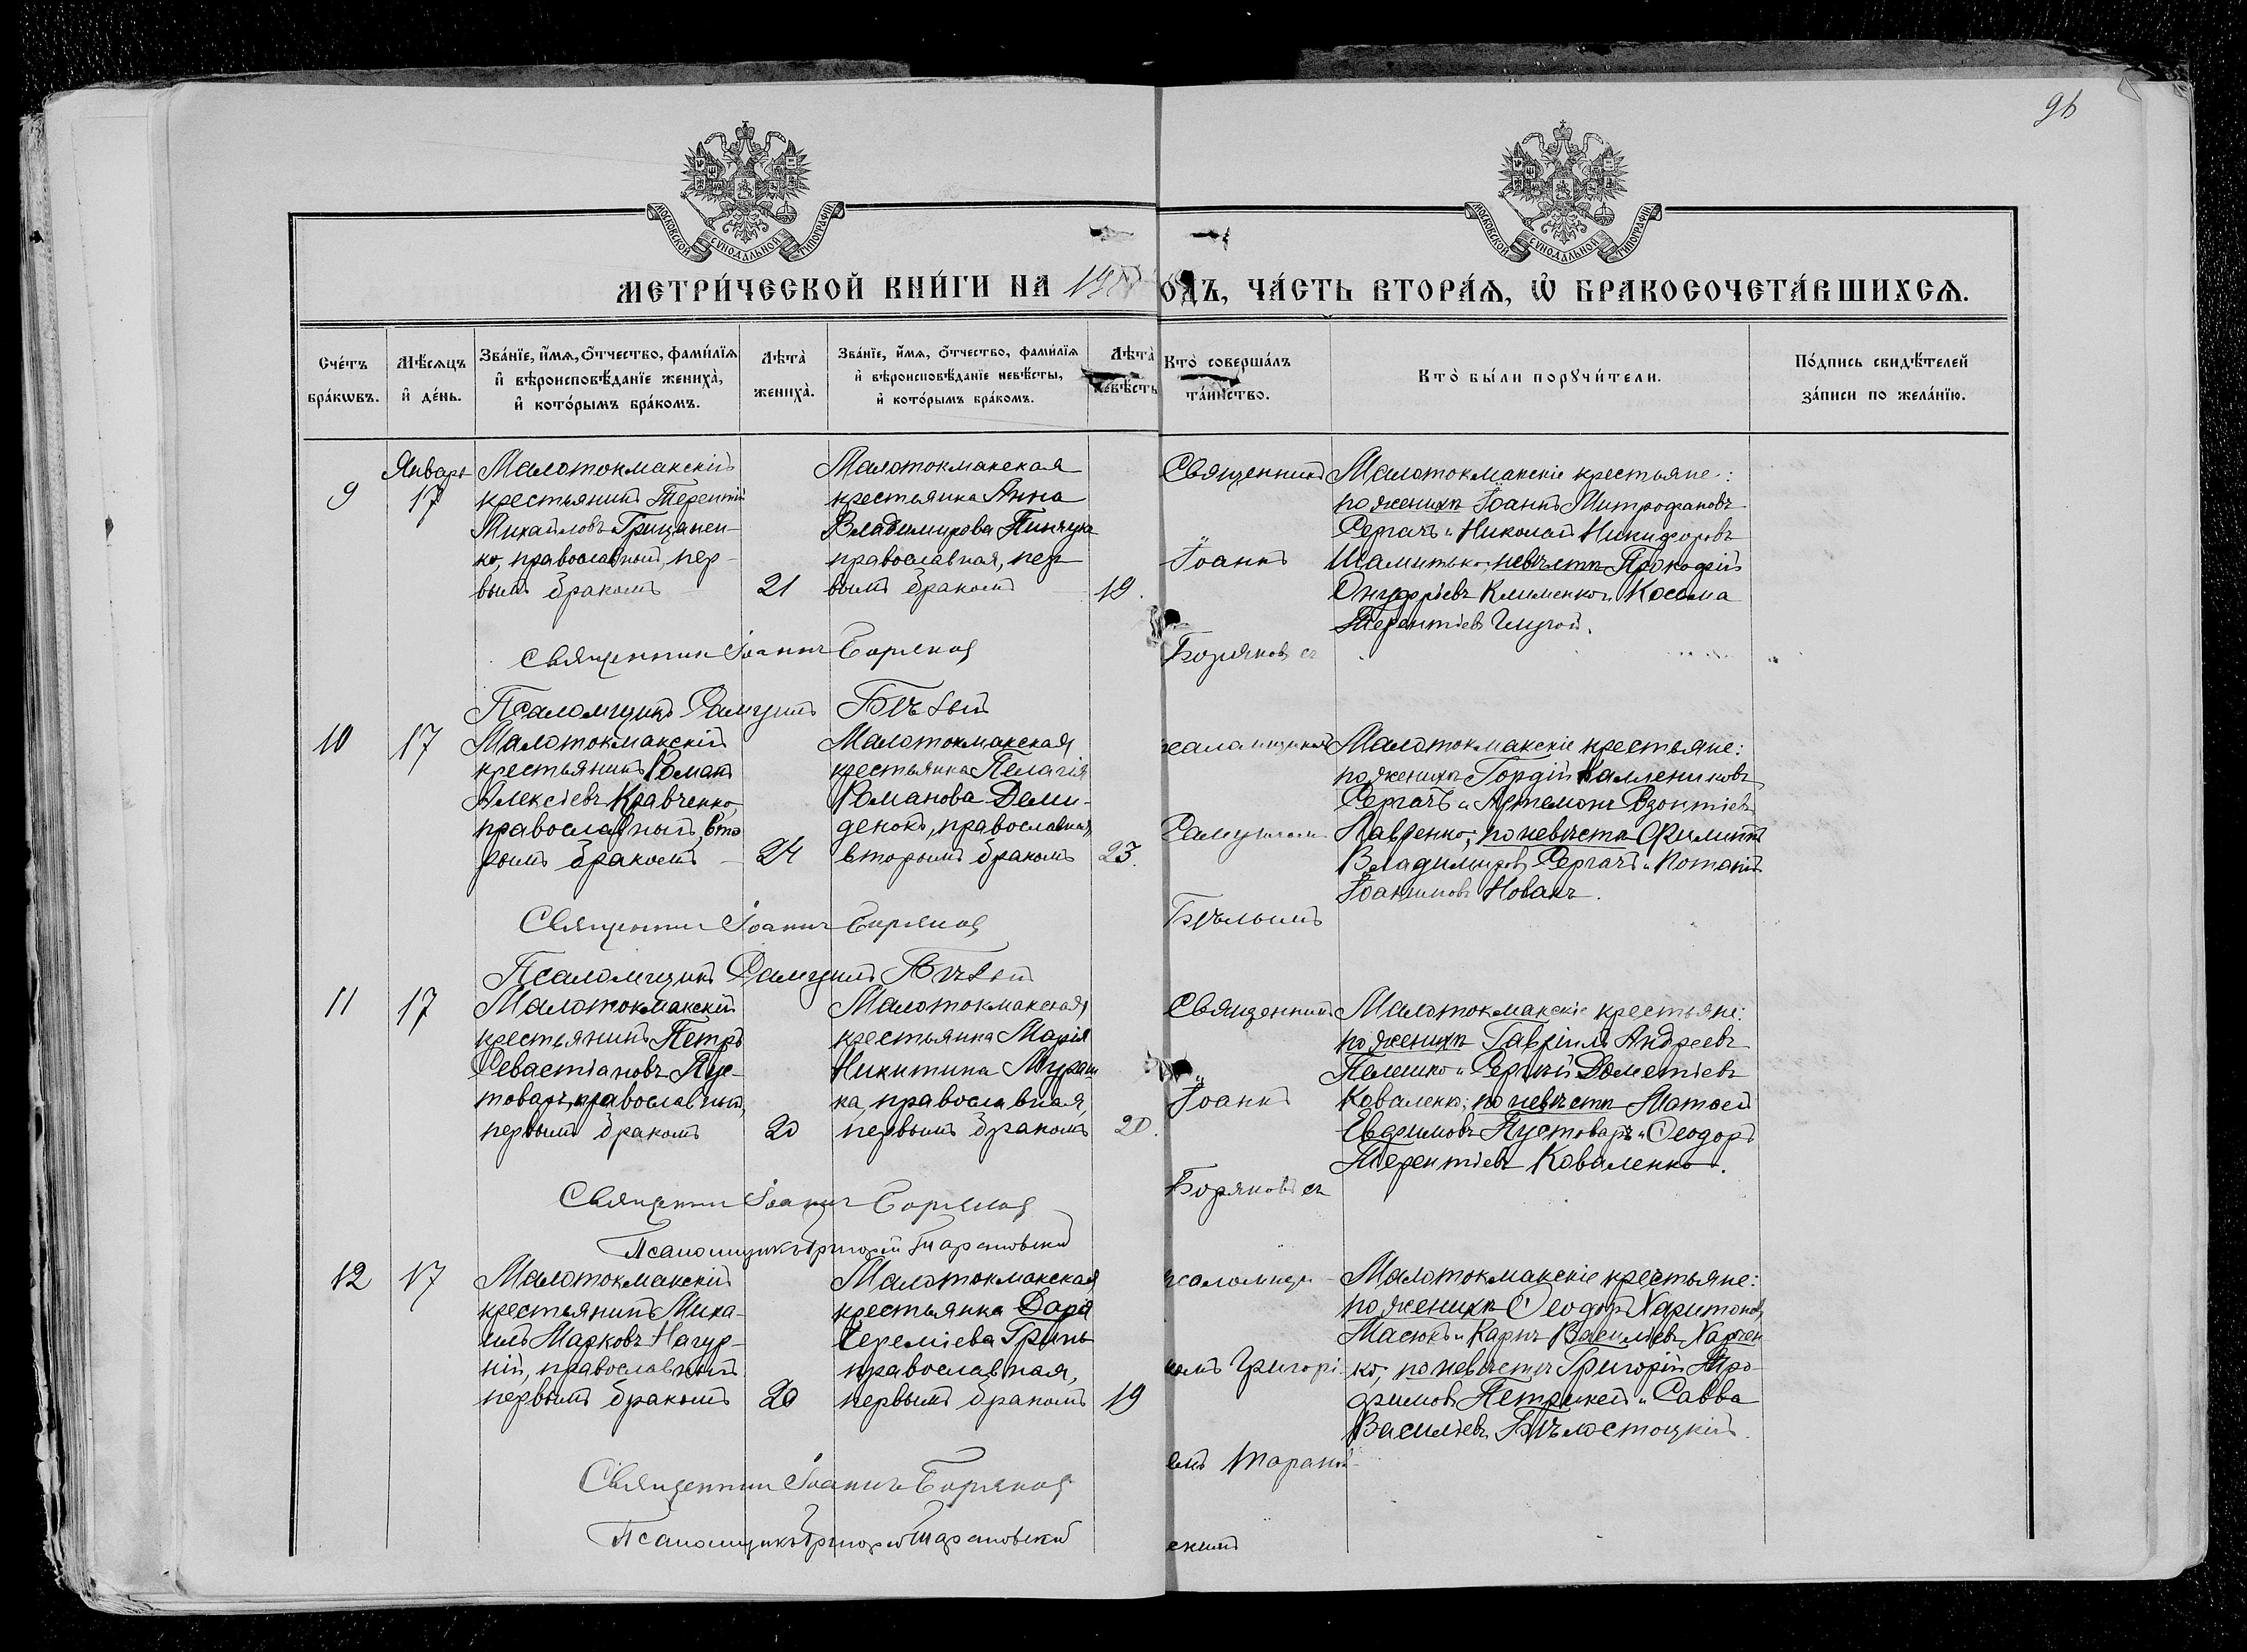 96
МОСКОВСКОЙ СѴНОДАЛЬНОЙ ТИПОГРАФІИ
МОСКОВСКОЙ СѴНОДАЛЬНОЙ ТИПОГРАФІИ
МЕТРИ́ЧЕСКОЙ КНИ́ГИ НА
ОДЪ, ЧА́СТЬ ВТОРА́Ѧ, Ѡ҆ БРАКОСОЧЕТА́ВШИХСѦ.
Сче́тъ бра́кѡвъ.
Мѣ́сѧцъ и҆ де́нь.
Зва́нїе, и҆́мѧ, ѻ҆́тчество, фами́лїѧ и҆ вѣроисповѣ́данїе жениха̀, и҆ кото́рымъ бра́комъ.
Лѣта̀ жениха̀.
Зва́нїе, и҆́мѧ, ѻ҆́тчество, фами́лїѧ и҆ вѣроисповѣ́данїе невѣ́сты, и҆ кото́рымъ бра́комъ.
Лѣта̀ невѣ́сты
Кто̀ соверша́лъ та́инство.
Кто̀ бы́ли порꙋчи́тели.
По́дпись свидѣ́телей за́писи по жела́нїю.
9
Январь
17
Малотокмакскій
крестьянинъ Терентій
Михайловъ Грицанен-
ко, православный, пер-
вымъ бракомъ
21
Малотокмакская
крестьянка Анна
Владимирова Пинчук
православная, пер
вымъ бракомъ
19.
Священникъ
Іоаннъ
Боряковъ съ
Малотокмакскіе крестьяне:
по женихѣ Іоаннъ Митрофановъ
Сергачъ и Николай Никифоровъ
Шамитько; невѣстѣ Прокофій
Онуфріевъ Клименко и Косьма
Терентіевъ
Священник Іоаннъ Боряков
Псаломщикъ Самуилъ Бѣлый
10
17
Малотокмакскій
крестьянинъ Романъ
Алексіевъ Кравченко
православный, вто
рымъ бракомъ
24
Малотокмакская
крестьянка Пелагія
Романова Деми-
денокъ, православная,
вторымъ бракомъ
23.
псаломщикомъ
Самуиломъ
Бѣлымъ
Малотокмакскіе крестьяне:
по женихѣ Гордій Каллениковъ
Сергачъ и Артемонъ Взонтіевъ
Лавренко; по невѣстѣ Филиппъ
Владимировъ Сергачъ и Потапій
Іоакимовъ Новакъ.
Священник Іоаннъ Боряков
Псаломщикъ Самуилъ Бѣлый
11
17
Малотокмакскій
крестьянинъ Петръ
Севастіановъ Пус-
товаръ, православный,
первымъ бракомъ
20
Малотокмакская
крестьянка Марія
Никитина Мураш
ка, православная,
первымъ бракомъ
20.
Священникъ
Іоаннъ
Боряковъ съ
Малотокмакскіе крестьяне:
по женихѣ Гавріилъ Андреевъ
Пелешко и Сергій Дометіевъ
Коваленко; по невѣстѣ Матѳей
Евфимовъ Пустоваръ и Ѳеодоръ
Терентіевъ Коваленко.
Священник Іоаннъ Боряков
Псаломщикъ Григорій Тарановскій
12
17
Малотокмакскій
крестьянинъ Миха-
илъ Марковъ Нагур-
ній, православный
первымъ бракомъ
20
Малотокмакская
крестьянка Дарія
Іереміева Гринь
православная,
первымъ бракомъ
19
псаломщи-
комъ Григорі-
емъ Таранов-
скимъ
Малотокмакскіе крестьяне:
по женихѣ Ѳеодоръ Харитоновъ
Масюкъ и Карпъ Василіевъ Харчен
ко; по невѣстѣ Григорій Тро-
фимовъ Петрикей и Савва
Василіевъ Бѣлостоцкій.
Священник Іоаннъ Боряков
Псаломщикъ Григорій Тарановскій